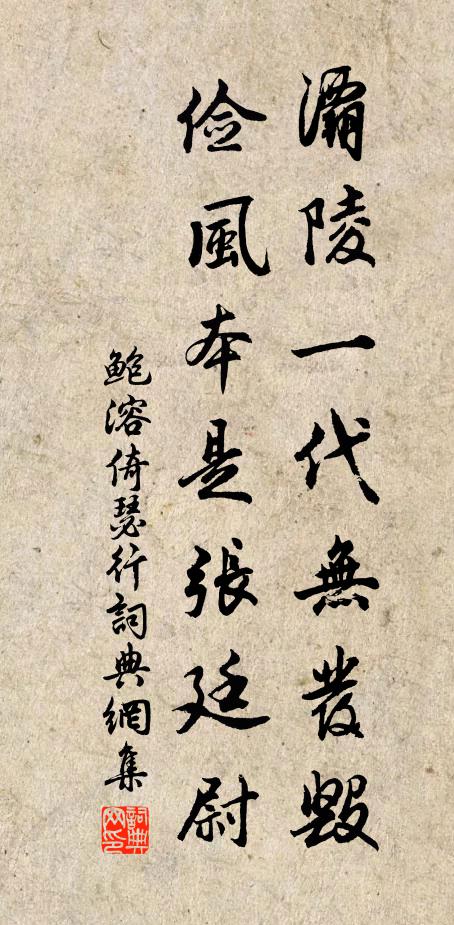 灞陵一代無發毀
儉風本是張廷尉
鮑溶倚瑟行詞典網集
詞典網印